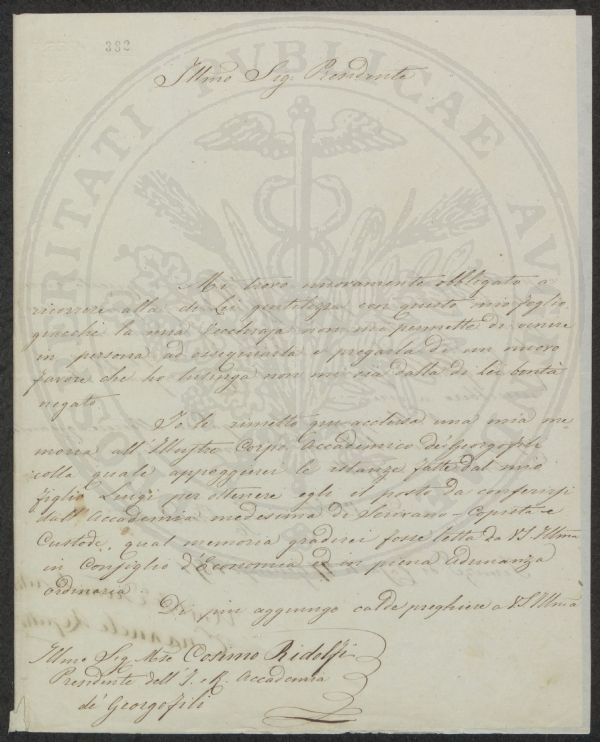 382
Illmo Sig. Presidente
Mi trovo nuovamente obbligato a
ricorrere alla di Lei gentilezza con questo mio foglio
giacchè la mia vecchiaja non mi permette di venire
in persona ad ossequiarla e pregarla di un nuovo
favore che ho lusinga non mi sia dalla di Lei bontà
negato
Io le rimetto qui acclusa una mia me-
moria all'Illustre Corpo Accademico dei Georgofili
colla quale appoggierei le istanze fatte dal mio
figlio Luigi per ottenere egli il posto da conferirsi
dall'Accademia medesima di Scrivano-Copista e
Custode, qual memoria gradirei fosse letta da VS Illma
in Consiglio d'Economia ed in piena Adunanza
ordinaria
Di più aggiungo calde preghiere a VS Illma
Illmo Sig. Mse Cosimo Ridolfi
Presidente dell'I. e R. Accademia
de' Georgofili
PROSPERITATI PVBLICAE AVGENDAE